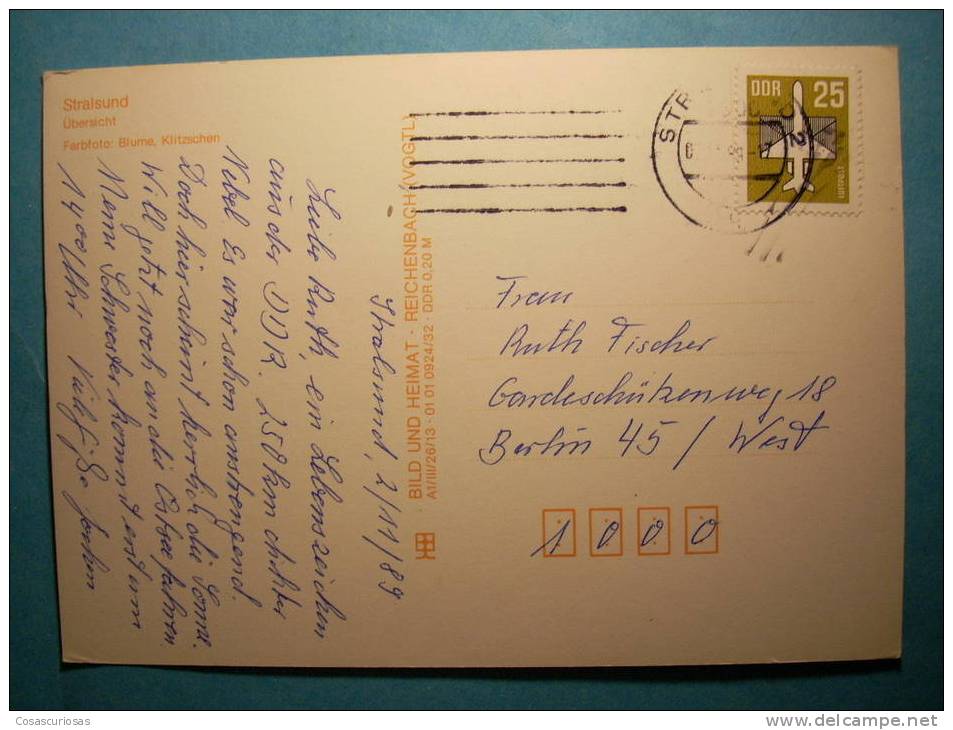 Stralsund
Übersicht
Farbfoto: Blume, Klitzschen
BILD UND HEIMAT · REICHENBACH (VOGTL)
A1/III/26/13 · 01 01 0924/32 · DDR 0,20 M
Stralsund, 2/11/89
Liebe Ruth, ein Lebenszeichen
aus der DDR. 250 km dichter
Nebel. Es war schon anstrengend.
Doch hier scheint herrlich die Sonne.
Will jetzt noch an die Ostsee fahren.
Meine Schwester kommt erst um
14 00 Uhr Viele Grüße Jochen
STR
2
DDR 25
LUFTPOST
Frau
Ruth Fischer
Gardeschützenweg 18
Berlin 45 / West
1000
Cosascuriosas
www.delcampe.net